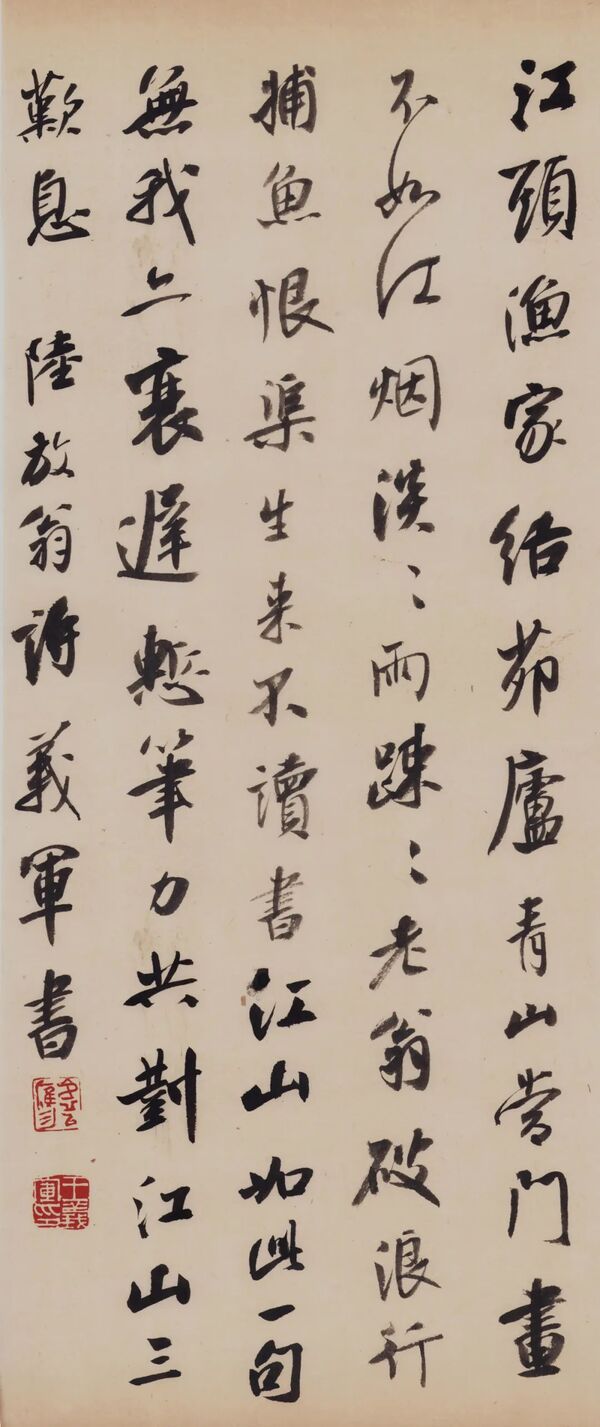 江頭漁家結茆廬青山當門畫
不如江烟淡〻雨踈〻老翁破浪行
捕魚恨渠生来不讀書江山如此一句
無我亦衰遲慙筆力共對江山三
歎息 陸放翁詩 義軍書
王義軍印